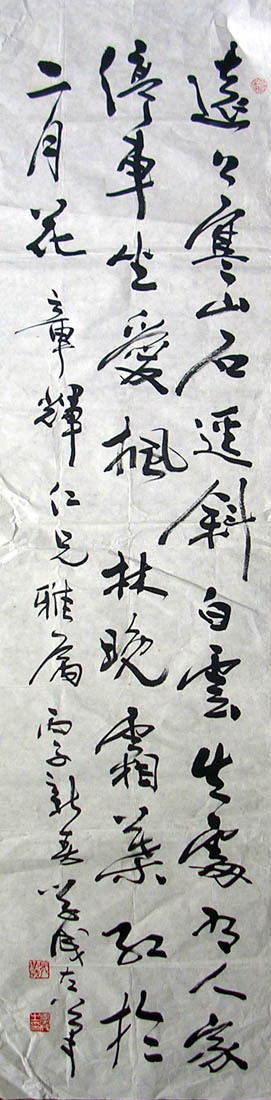 遠上寒山石逕斜白雲生處有人家
停車坐愛楓林晚霜葉紅於
二月花
章輝仁兄雅屬 丙子新春 学成左筆